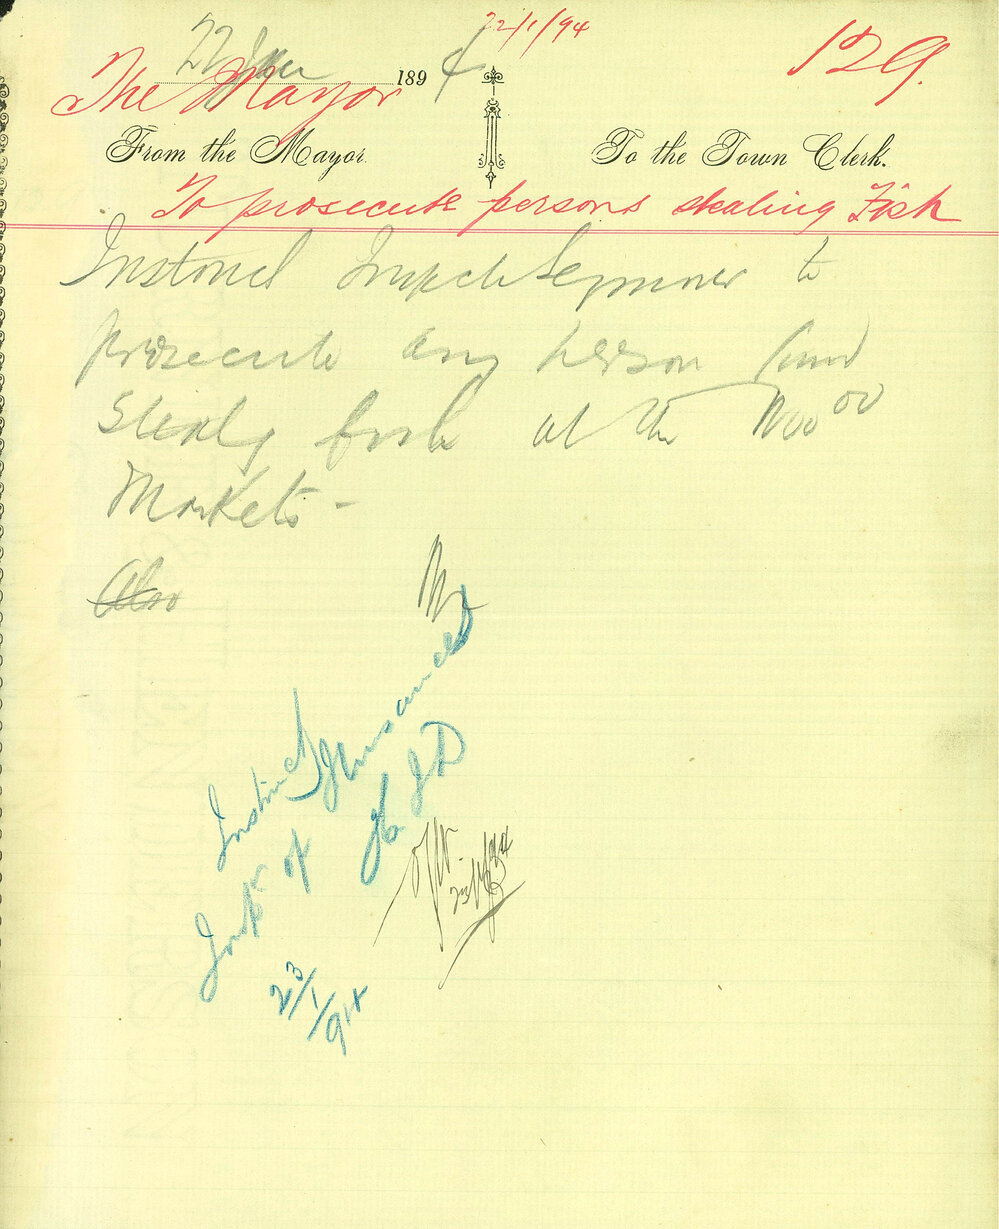 22/1/94
129
22 Jan 1894
The Mayor
From the Mayor.
To the Town Clerk.
To prosecute persons stealing Fish
Instruct Inspector Seymour to
prosecute any person found
Stealing fish at the Woo oo
Markets -
Also
Instruct
Insp. of Nuisances
23/1/94
23/1/94